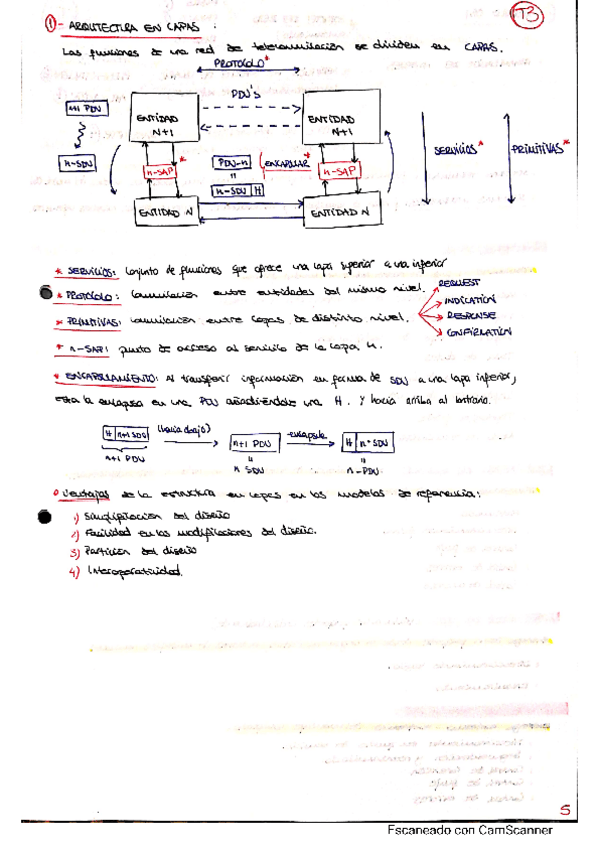 T3
1 - ARQUITECTURA EN CAPAS :
Las funciones de una red de telecomunicación se dividen en CAPAS.
PROTOCOLO*
PDU'S
n+1 PDU
ENTIDAD N+1
ENTIDAD N+1
SERVICIOS*
PRIMITIVAS*
n-SDU
n-SAP *
PDU-n
=
n-SDU H
ENCAPSULAR *
n-SAP
ENTIDAD N
ENTIDAD N
* SERVICIOS: Conjunto de funciones que ofrece una capa superior a una inferior
* PROTOCOLO: Comunicación entre entidades del mismo nivel.
* PRIMITIVAS: Comunicación entre capas de distinto nivel.
REQUEST
INDICATION
RESPONSE
CONFIRMATION
* n-SAP: punto de acceso al servicio de la capa n.
* ENCAPSULAMIENTO: Al transferir información en forma de SDU a una capa inferior,
esta la encapsula en una PDU añadiéndole una H. Y hacia arriba al contrario.
H n+1 SDU
n+1 PDU
(hacia abajo)
n+1 PDU
=
n SDU
encapsula
H n-SDU
=
n-PDU
Ventajas de la estructura en capas en los modelos de referencia:
1) Simplificación del diseño
2) Facilidad en las modificaciones del diseño.
3) Partición del diseño
4) Interoperatividad.
5
Escaneado con CamScanner